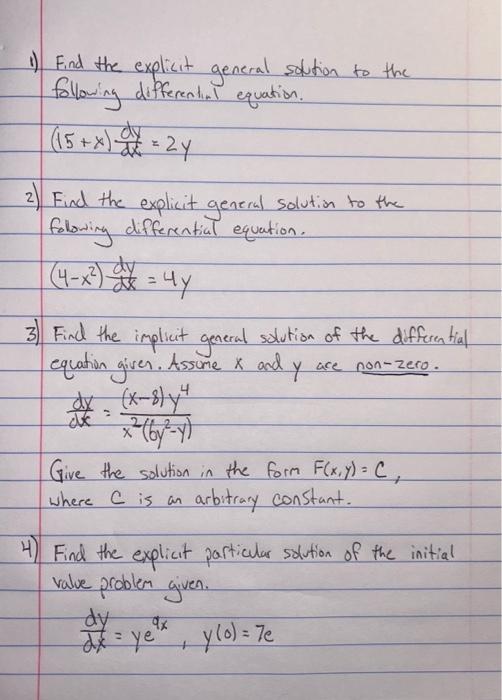 1) Find the explicit general solution to the
following differential equation.
(15+x) dy/dx = 2y
2) Find the explicit general solution to the
following differential equation.
(4-x²) dy/dx = 4y
3) Find the implicit general solution of the differential
equation given. Assume x and y are non-zero.
dy/dx = (x-8)y⁴ / x²(6y²-y)
Give the solution in the form F(x,y) = C,
where C is an arbitrary constant.
4) Find the explicit particular solution of the initial
value problem given.
dy/dx = ye^9x, y(0) = 7e